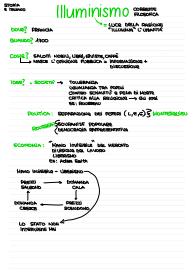 STORIA
Illuminismo CORRENTE FILOSOFICA
= LUCE DELLA RAGIONE
"ILLUMINA" L'UMANITÀ
DOVE? FRANCIA
QUANDO? 700
COSA? SALOTTI, LIBRI, CAFFÈ
NASCE L'OPINIONE PUBBLICA = INFORMAZIONE + DISCUSSIONE
SOCIETÀ → TOLLERANZA
UGUAGLIANZA TRA
CONTRO SCHIAVITÙ E PENA DI MORTE
CRITICA ALLA RELIGIONE → DIO
POLITICA: SEPARAZIONE DEI POTERI MONTESQUIEU
SOVRANITÀ POPOLARE
DEMOCRAZIA RAPPRESENTATIVA
ECONOMIA: MANO INVISIBILE DEL MERCATO
DIVISIONE DEL LAVORO
LIBERISMO
ADAM SMITH
MANO INVISIBILE - LIBERISMO
PREZZI SALGONO → DOMANDA CALA
DOMANDA CRESCE ← PREZZI SCENDONO
LO STATO NON INTERVIENE MAI